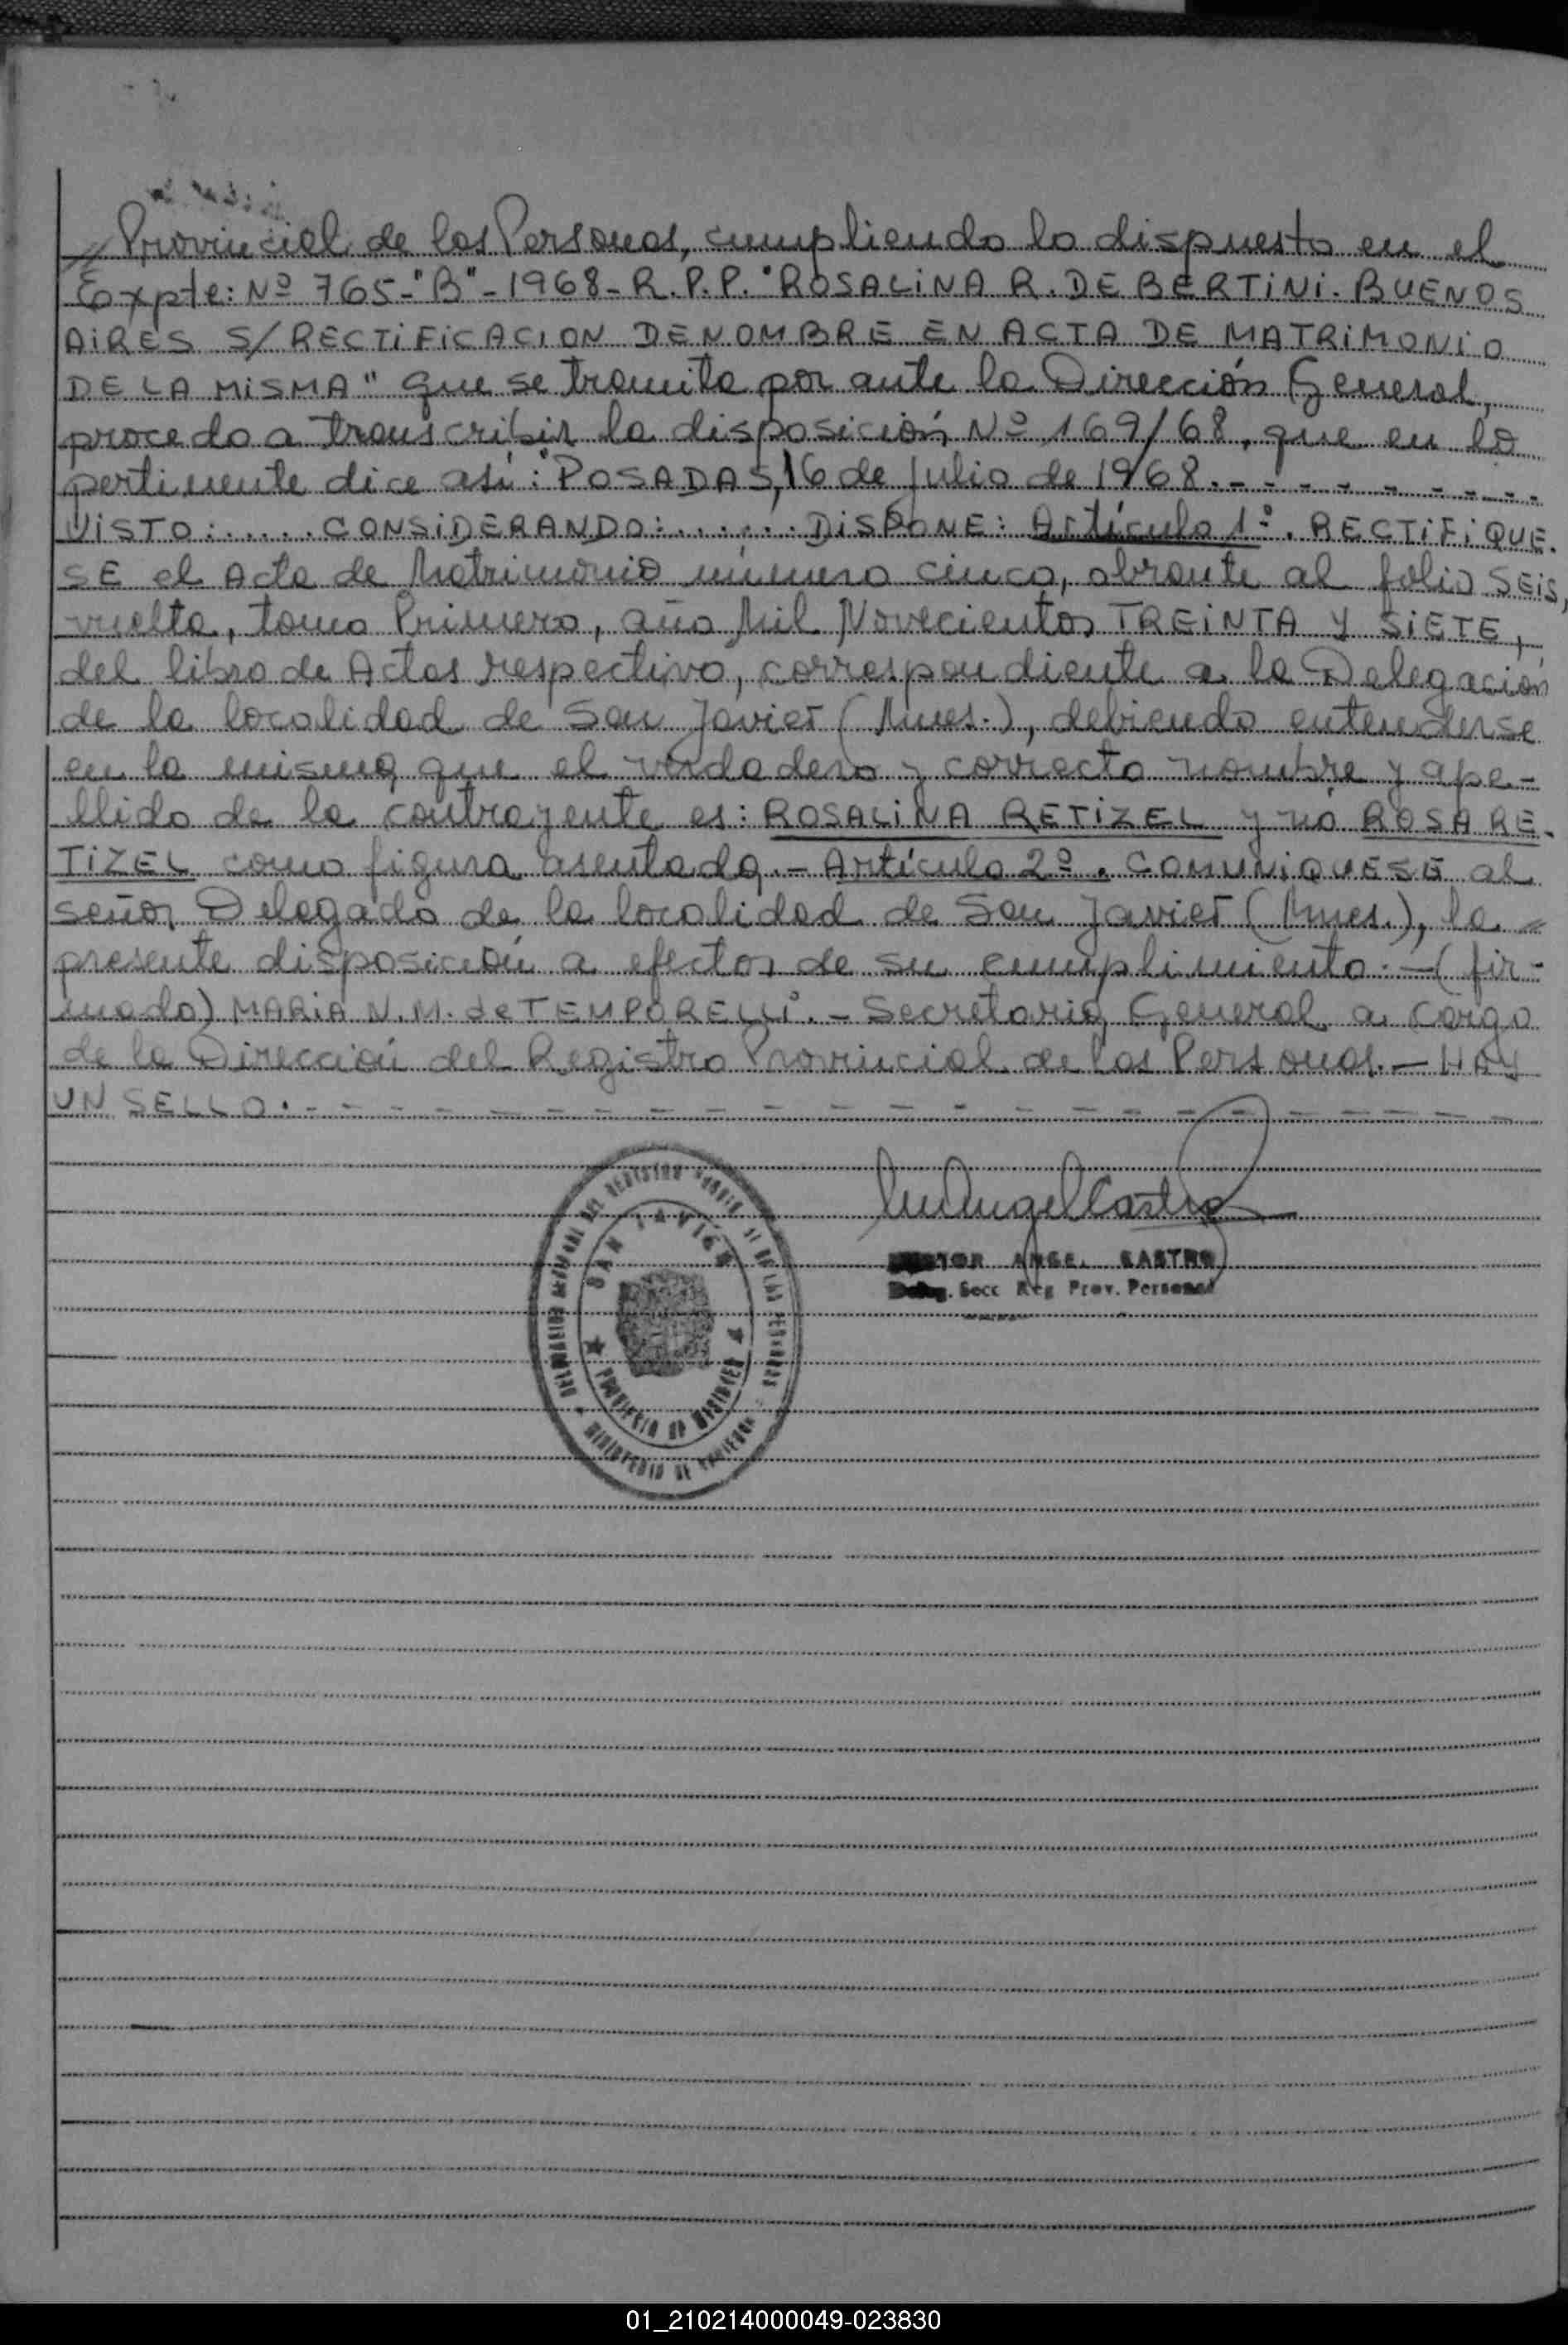 // Provincial de las Personas, cumpliendo lo dispuesto en el
Expte: Nº 765-"B"-1968-R.P.P. "ROSALINA R. DE BERTINI. BUENOS
AIRES S/RECTIFICACION DE NOMBRE EN ACTA DE MATRIMONIO
DE LA MISMA" que se tramita por ante la Dirección General,
procedo a transcribir la disposición Nº 169/68, que en lo
pertinente dice así: "POSADAS, 16 de julio de 1968.- - - - - - - - -
VISTO:..... CONSIDERANDO:...... DISPONE: Artículo 1º. RECTIFIQUE-
SE el Acta de Matrimonio número cinco, obrante al folio SEIS,
vuelta, tomo Primero, año Mil Novecientos TREINTA Y SIETE,
del libro de Actas respectivo, correspondiente a la Delegación
de la localidad de San Javier (Mnes.), debiendo entenderse
en la misma que el verdadero y correcto nombre y ape-
llido de la contrayente es: ROSALINA RETIZEL y nó ROSA RE-
TIZEL como figura asentada.- Artículo 2º. COMUNIQUESE al
señor Delegado de la localidad de San Javier (Mnes.), la =
presente disposición a efectos de su cumplimiento.-(fir-
mado) MARIA N.M. de TEMPORELLI.- Secretaria General a cargo
de la Dirección del Registro Provincial de las Personas.- HAY
UN SELLO.- - - - - - - - - - - - - - - - - -
ANGEL CASTRO
Deleg. Secc Reg Prov. Personas
DEL REGISTRO DE LAS PERSONAS
SAN JAVIER
PROVINCIA DE MISIONES
MINISTERIO DE GOBIERNO
01_210214000049-023830